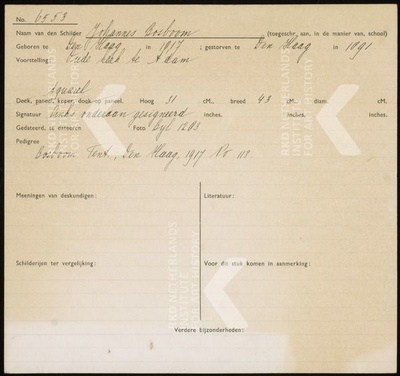 No. 6953
Naam van den Schilder Johannes Bosboom (toegeschr. aan, in de manier van, school)
Geboren te Den Haag, in 1917; gestorven te Den Haag in 1891
Voorstelling: Oude kerk te A'dam
Aquarel
Doek, paneel, koper, doek op paneel. Hoog 31 cM., breed 43 cM., diam. cM.
Signatuur links onderaan gesigneerd inches. inches.
Gedateerd, is omstreeks Foto Cyl 1203
Pedigree
Bosboom Tent., Den Haag, 1917 No 113
Meeningen van deskundigen: Literatuur:
Schilderijen ter vergelijking: Voor die stuk komen in aanmerking:
Verdere bijzonderheden:
RKD NETHERLANDS
INSTITUTE
FOR ART HISTORY